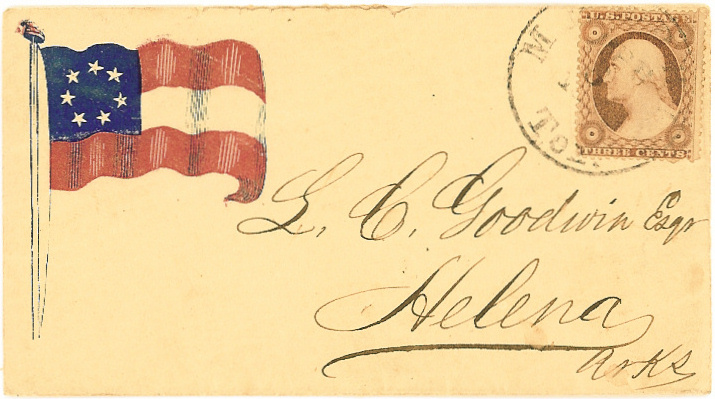 U.S. POSTAGE
THREE CENTS
L. C. Goodwin Esqr
Helena
Arks